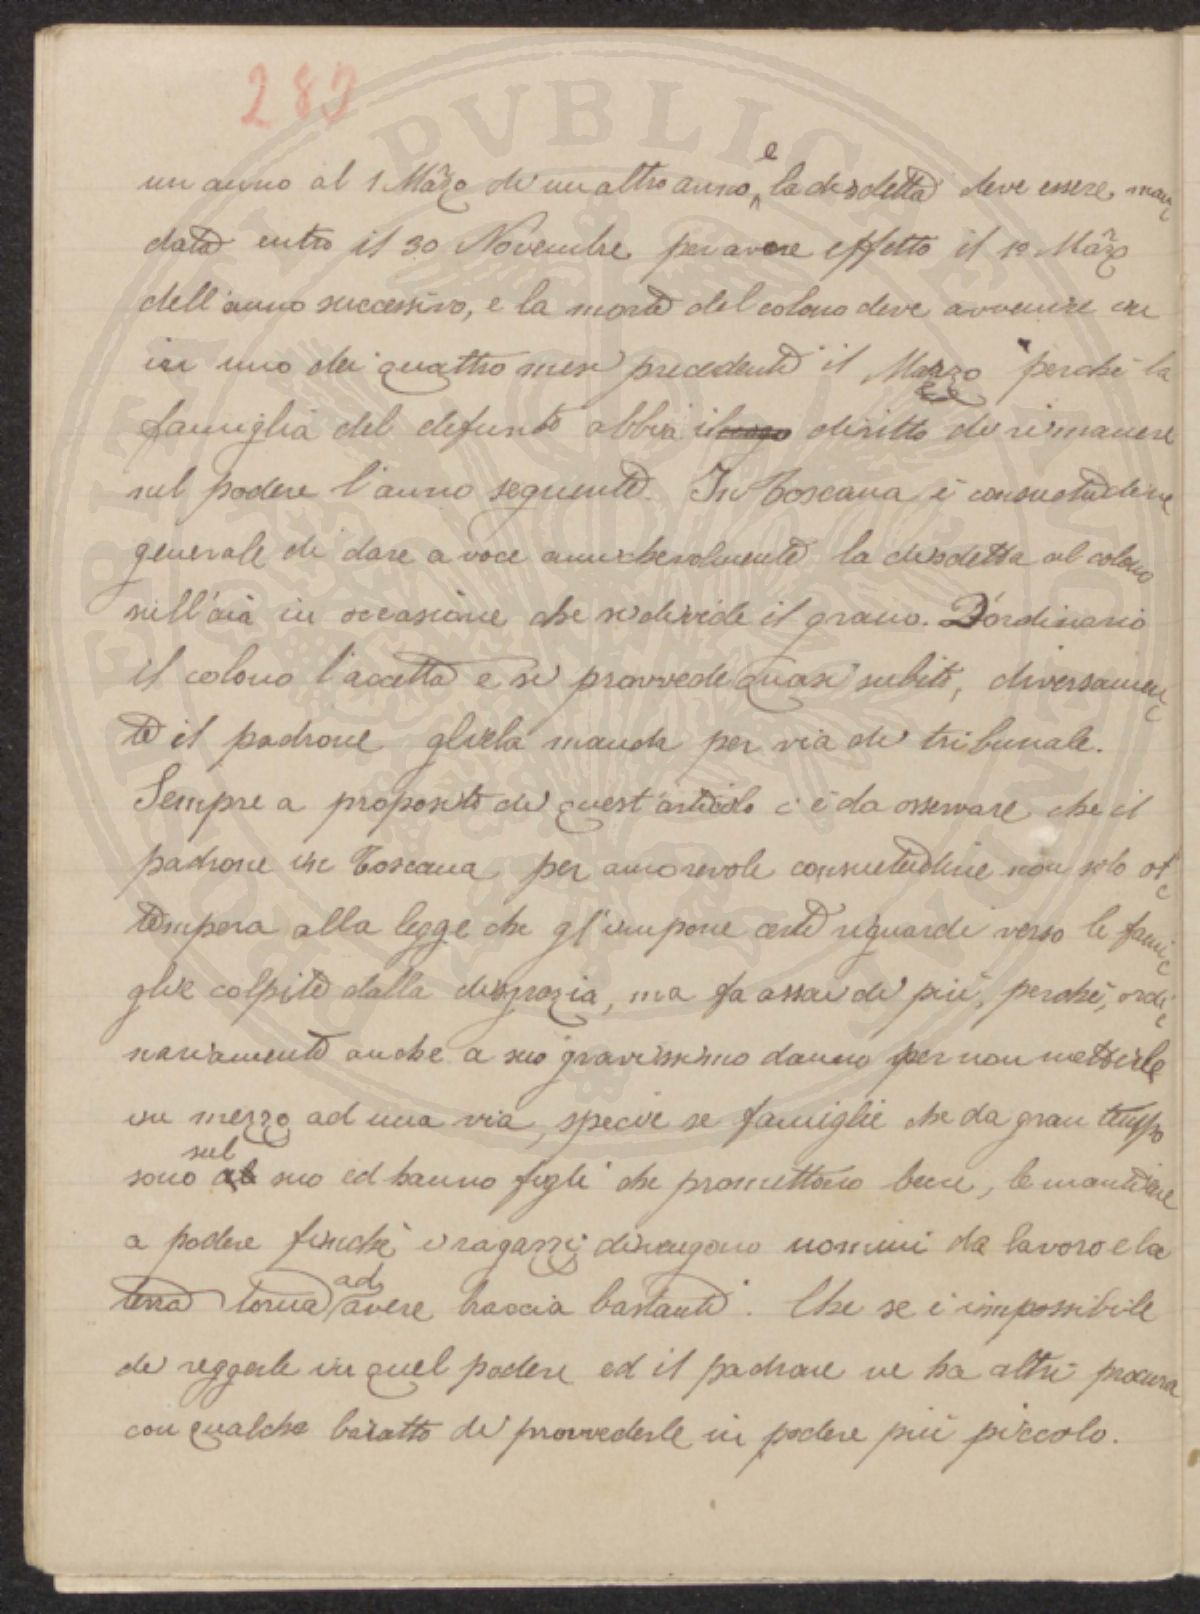 282
un anno al 1 Marzo di un altro anno, e la disdetta deve essere man-
data entro il 30 Novembre per avere effetto il 1º Marzo
dell'anno successivo, e la morte del colono deve avvenire in
in uno dei quattro mesi precedenti il Marzo perchè la
famiglia del defunto abbia il diritto di rimanere
sul podere l'anno seguente. In Toscana è consuetudine
generale di dare a voce amichevolmente la disdetta al colono
sull'aia in occasione che si divide il grano. D'ordinario
il colono l'accetta e si provvede quasi subito, diversamen-
te il padrone gliela manda per via di tribunale.
Sempre a proposito di quest'articolo c'è da osservare che il
padrone in Toscana per amorevole consuetudine non solo ot-
tempera alla legge che gl'impone certi riguardi verso le fami-
glie colpite dalla disgrazia, ma fa assai di più, perchè, ordi-
nariamente anche a suo gravissimo danno per non metterle
in mezzo ad una via, specie se famiglie che da gran tempo
sono sul suo ed hanno figli che promettono bene, le mantiene
a podere finchè i ragazzi divengono uomini da lavoro e la
terra torna ad avere braccia bastanti. Che se è impossibile
di reggerle in quel podere ed il padrone ne ha altri procura
con qualche baratto di provvederle in podere più piccolo.
PVBLICAE